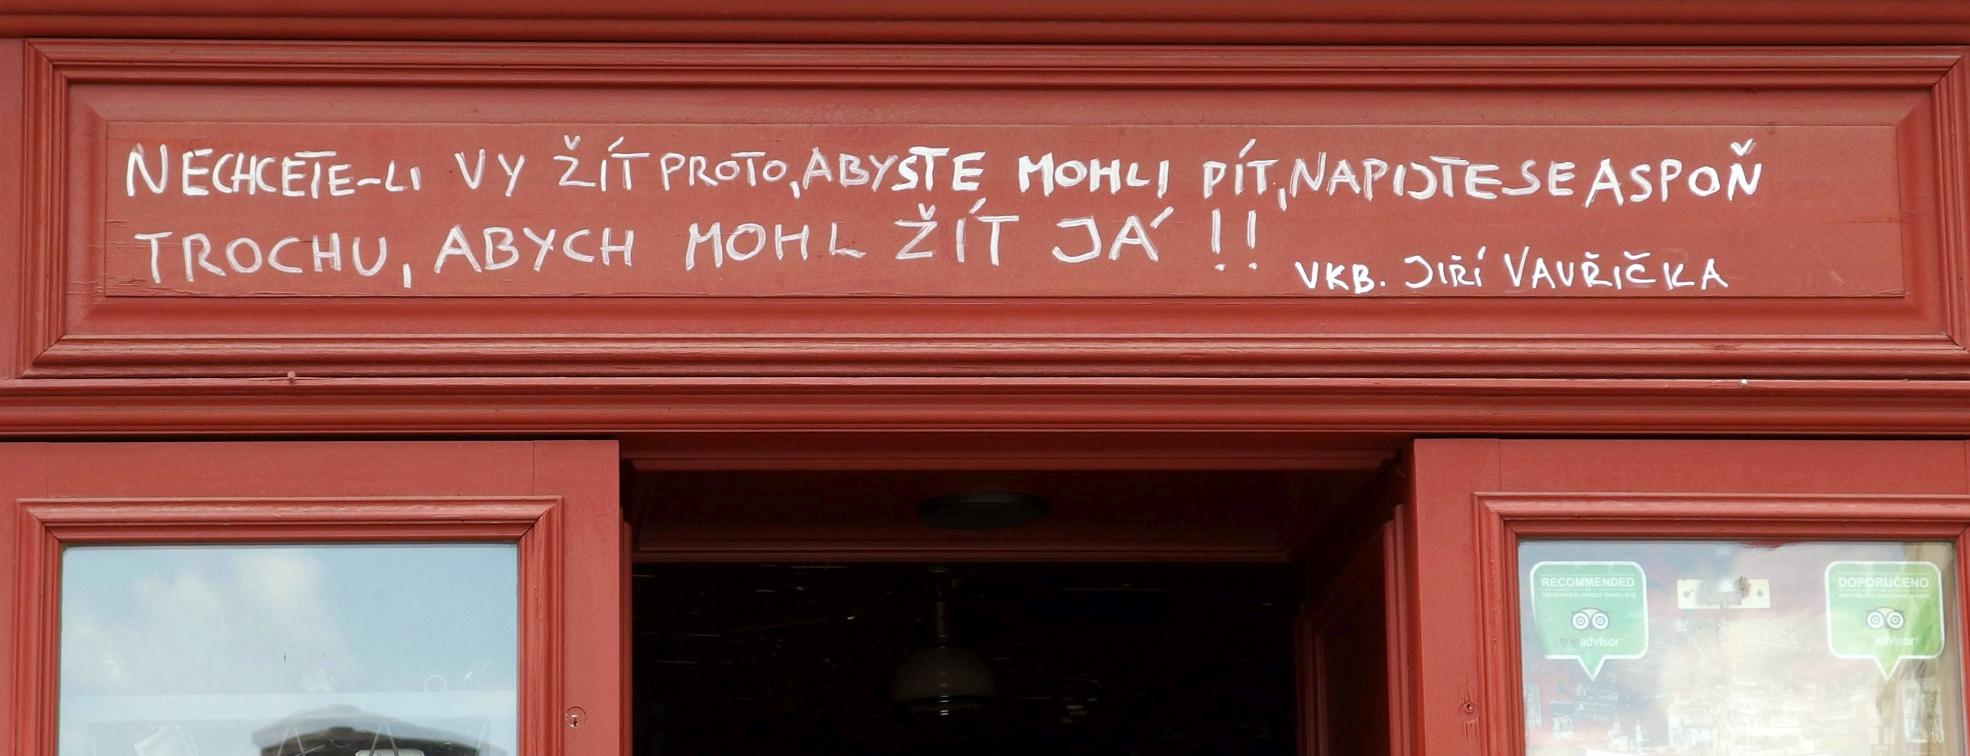 NECHCETE-LI VY ŽÍT PROTO, ABYSTE MOHLI PÍT, NAPIJTE SE ASPOŇ
TROCHU, ABYCH MOHL ŽÍT JÁ !!
VKB. JIŘÍ VAVŘIČKA
RECOMMENDED
tripadvisor
DOPORUČENO
tripadvisor